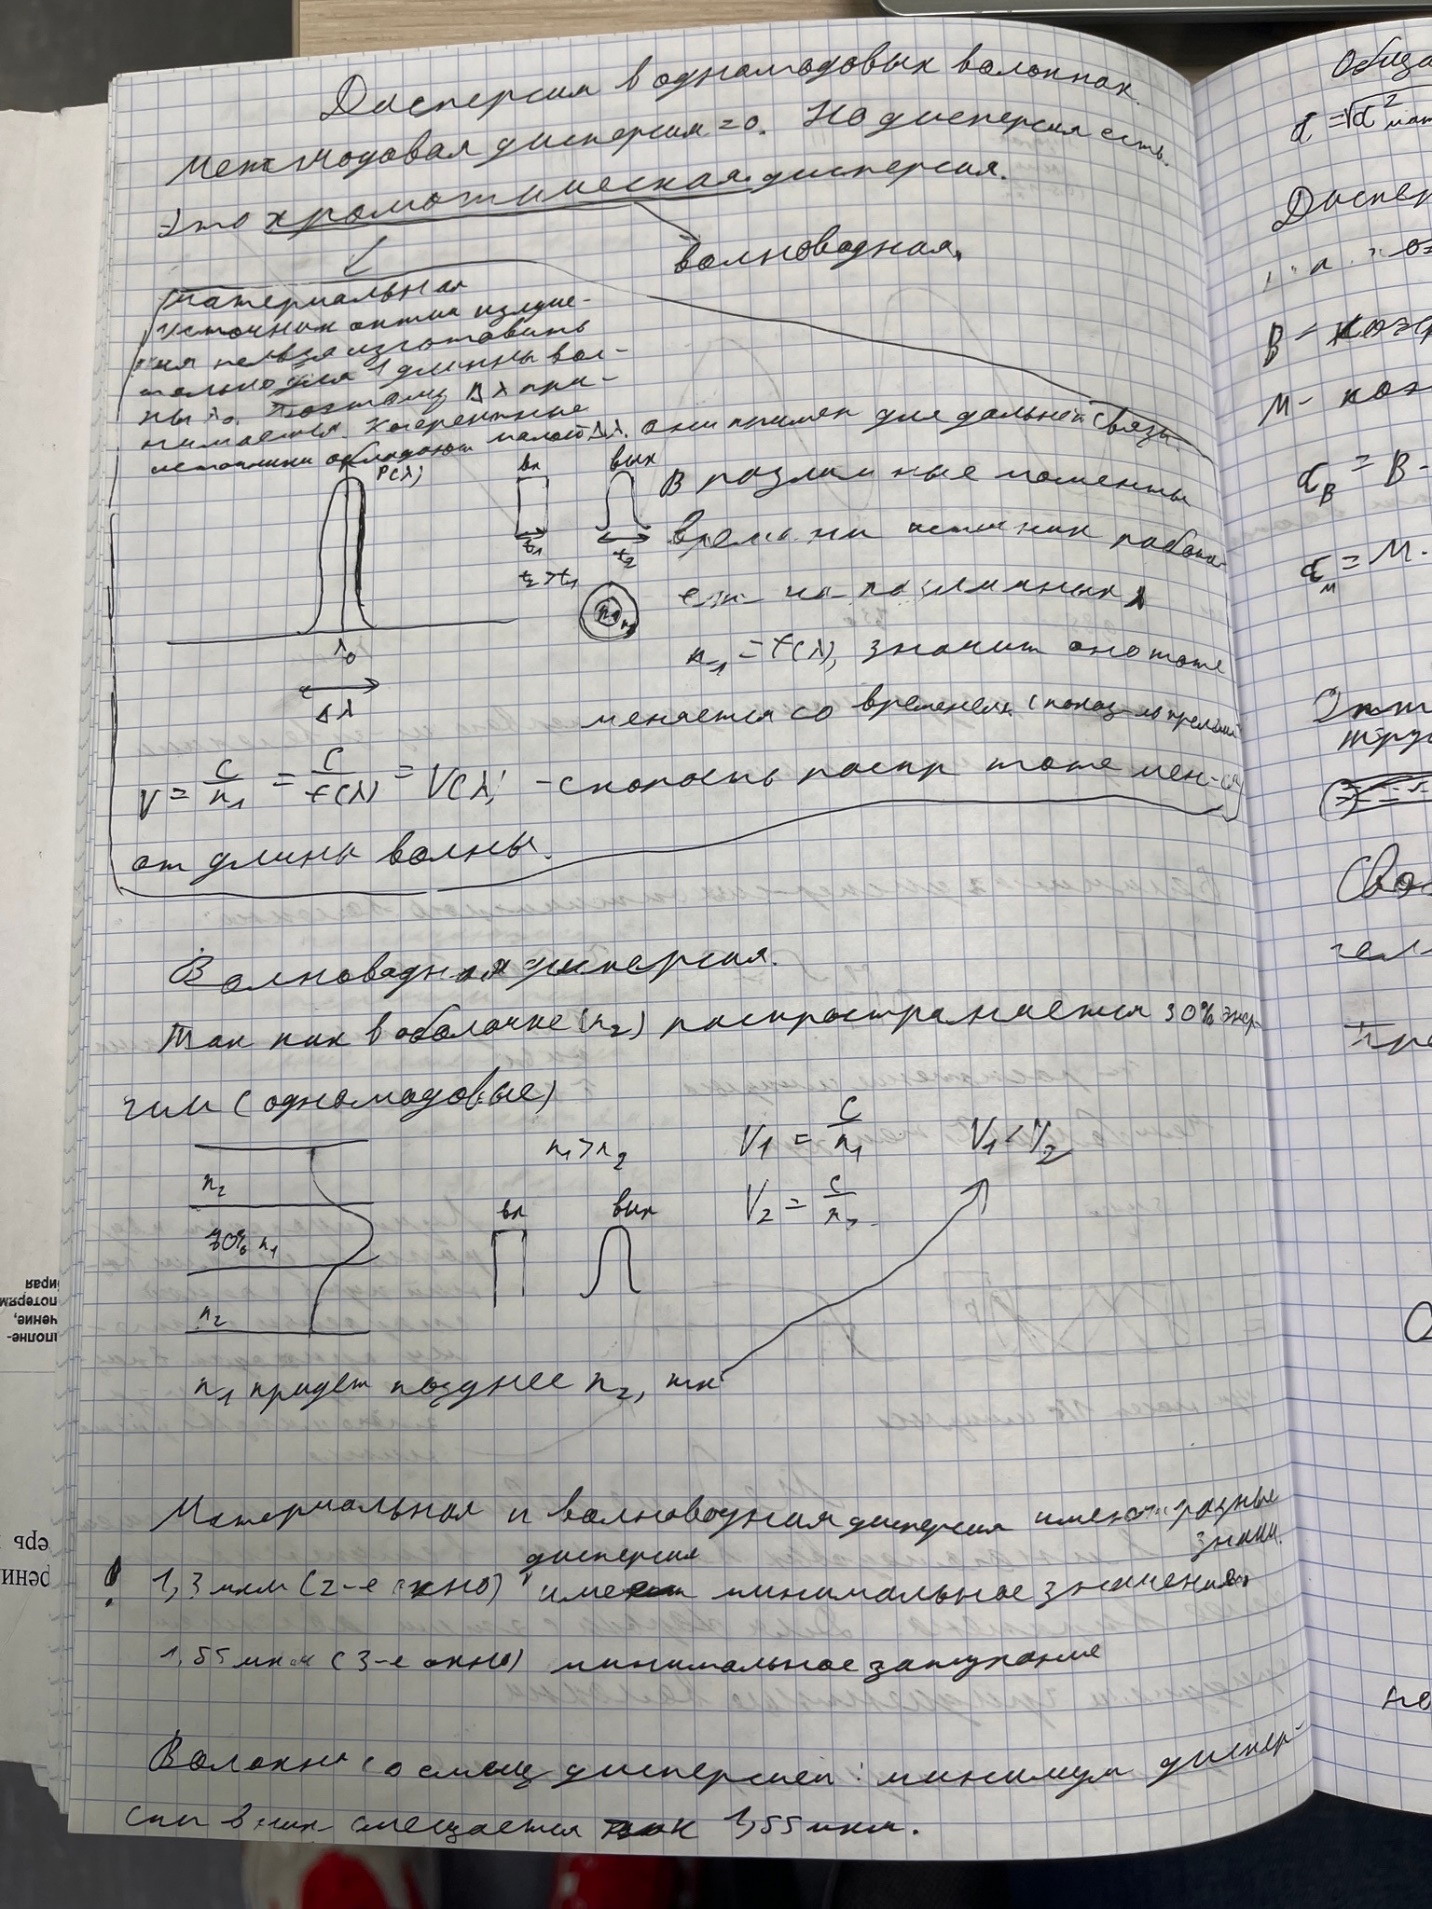 Дисперсия в одномодовых волокнах.
Межмодовая дисперсия = 0. Но дисперсия есть.
Это хромотическая дисперсия.
волноводная.
материальная
источник оптич излуче-
ния нельзя изготовить
только для 1 длинны вол-
ны λ₀. Поэтому Δλ при-
нимается. Когерентные
источники обладают малой Δλ. они примен для дальней связь
P(λ)
вх
вых
t₁
t₂
t₂>t₁
λ₀
Δλ
В различные моменты
времени источник работа-
ет на различных λ
n₁ = f(λ), значит оно тоже
меняется со временем (показ-ль прелом
V = c/n₁ = c/f(λ) = V(λ) - скорость распр тоже мен-ся
от длины волны.
Волноводная дисперсия.
Так как в оболочке (n₂) распространяется 30% энер-
гии (одномодовые)
n₁>n₂
V₁ = c/n₁
V₁<V₂
V₂ = c/n₂
n₂
70% n₁
n₂
вх
вых
n₁ придет позднее n₂, тк
Материальная и волноводная дисперсия имеют разные
знаки.
дисперсия
! 1,3 мкм (2-е окно) имеет минимальное значение.
1,55 мкм (3-е окно) минимальное затухание
Волокна со смещ дисперсией: минимум диспер-
сии в них смещается к 1,55 мкм.
Обща
Диспер
B -
M - 
Свой